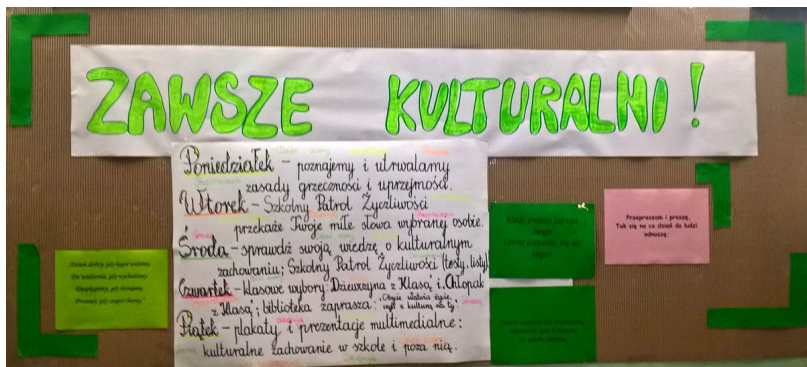 ZAWSZE KULTURALNI!
Poniedziałek – poznajemy i utrwalamy
zasady grzeczności i uprzejmości.
Wtorek – Szkolny Patrol Życzliwości
przekaże Twoje miłe słowa wybranej osobie.
Środa – sprawdź swoją wiedzę o kulturalnym
zachowaniu; Szkolny Patrol Życzliwości (testy, listy)
Czwartek – klasowe wybory: Dziewczyna z Klasą i Chłopak
z Klasą; biblioteka zaprasza: „Czytanie
z kulturą na ty".
Piątek – plakaty i prezentacje multimedialne:
kulturalne zachowanie w szkole i poza nią.
„Dzień dobry, gdy kogoś widzimy,
Do widzenia, gdy wychodzimy,
Dziękujemy, gdy dostajemy,
Prosimy, gdy czegoś chcemy."
Kiedy zrobisz już coś
złego,
Umiej przyznać się do
tego!
Przepraszam i proszę,
Tak się na co dzień do ludzi
odnoszę.